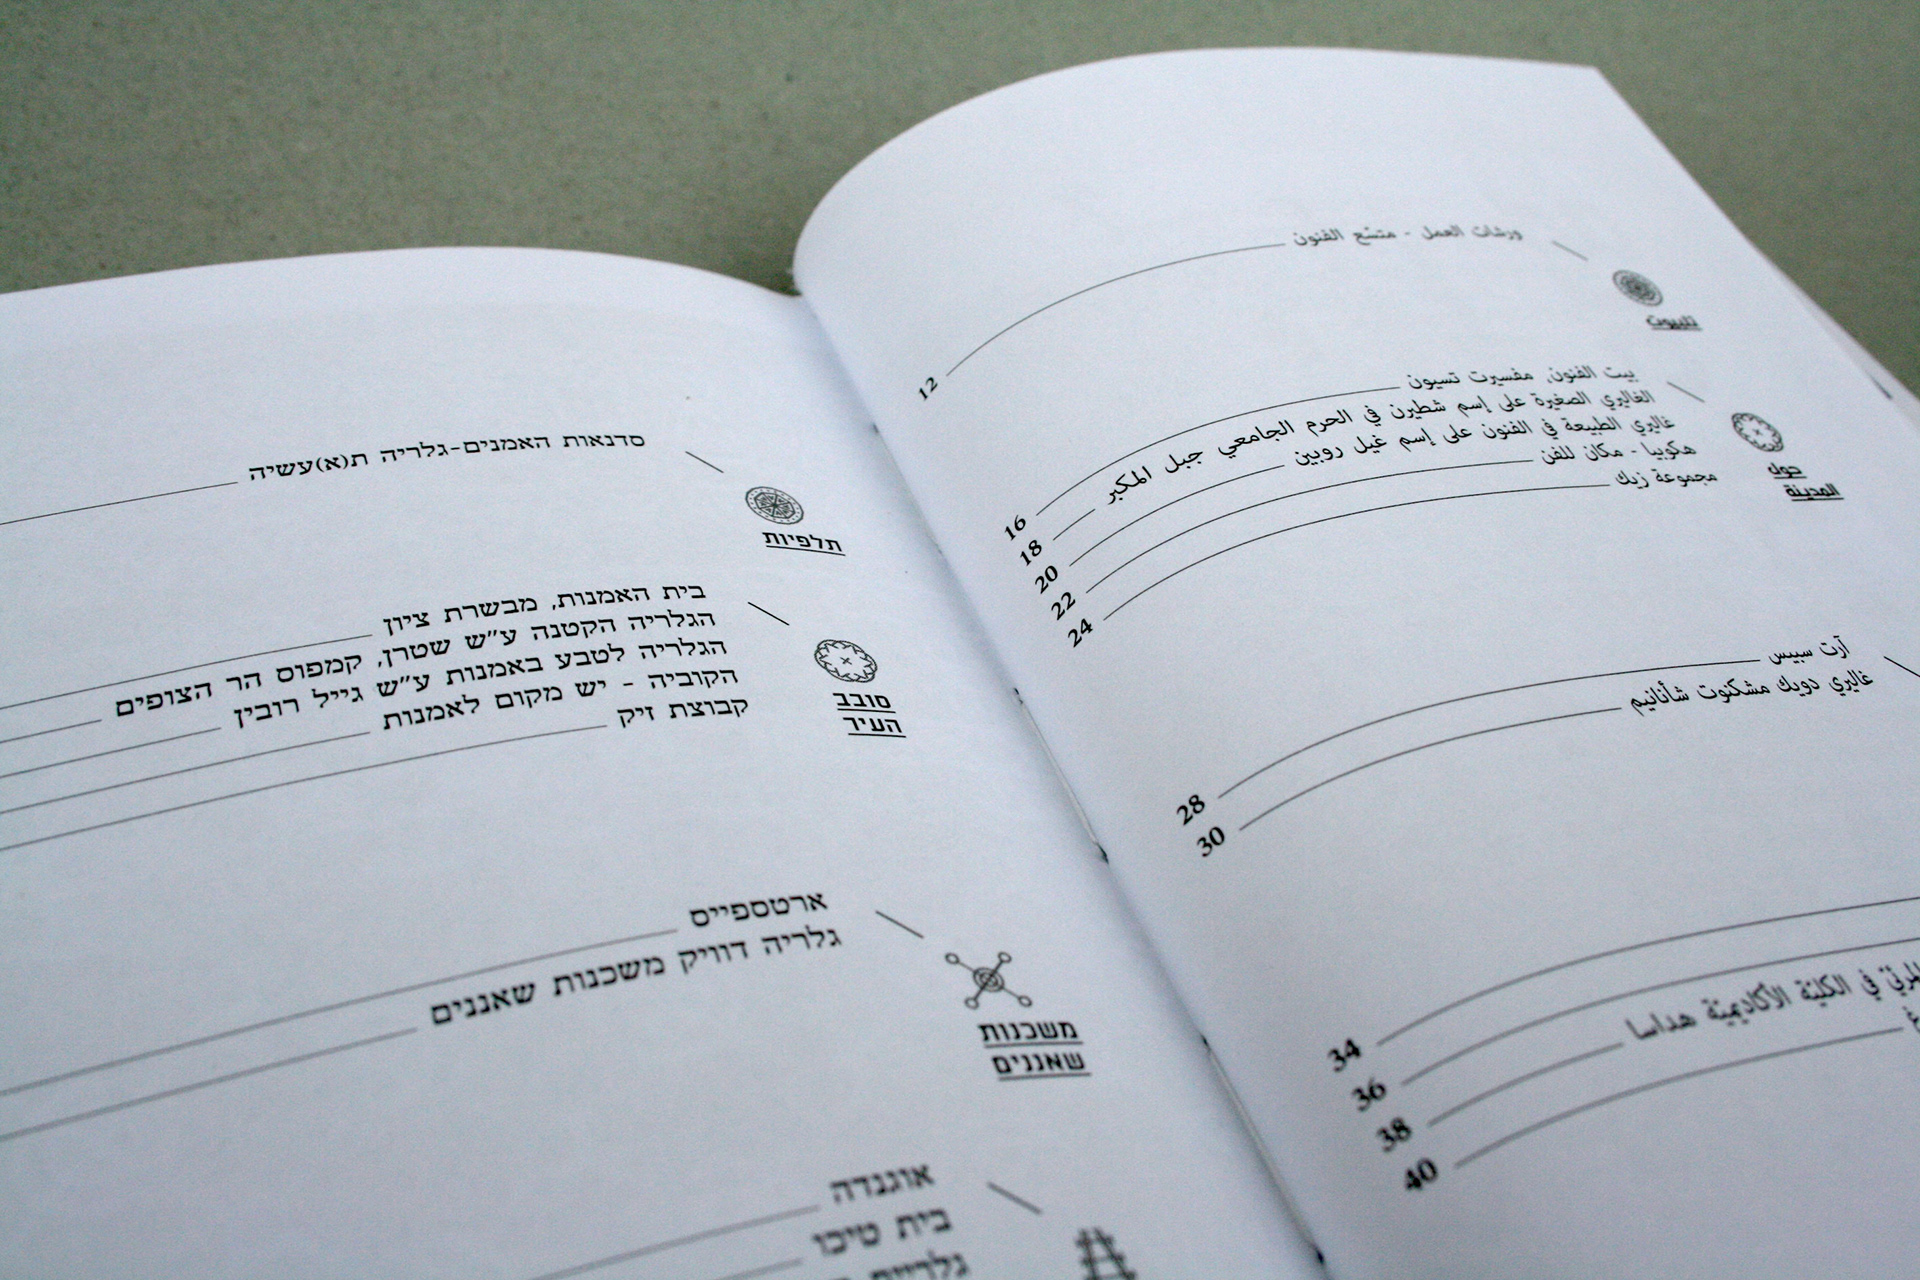 סדנאות האמנים-גלריה ת(א)עשיה
תלפיות
בית האמנות, מבשרת ציון
הגלריה הקטנה ע"ש שטרן, קמפוס הר הצופים
הגלריה לטבע באמנות ע"ש גייל רובין
הקוביה - יש מקום לאמנות
קבוצת זיק
סובב
העיר
ארטספייס
גלריה דוויק משכנות שאננים
משכנות
שאננים
אוגנדה
בית טיכו
ورشات العمل - متسّع الفنون 12
تلبيوت
بيت الفنون، مفسيرت تسيون 16
الغاليري الصغيرة على إسم شطيرن في الحرم الجامعي جبل المكبر 18
غاليري الطبيعة في الفنون على إسم غيل روبين 20
هكوبيا - مكان للفن 22
مجموعة زيك 24
حول
المدينة
آرت سبيس 28
غاليري دويك مشكنوت شأنانيم 30
34
36
في الكليّة الأكاديميّة هداسا 38
40